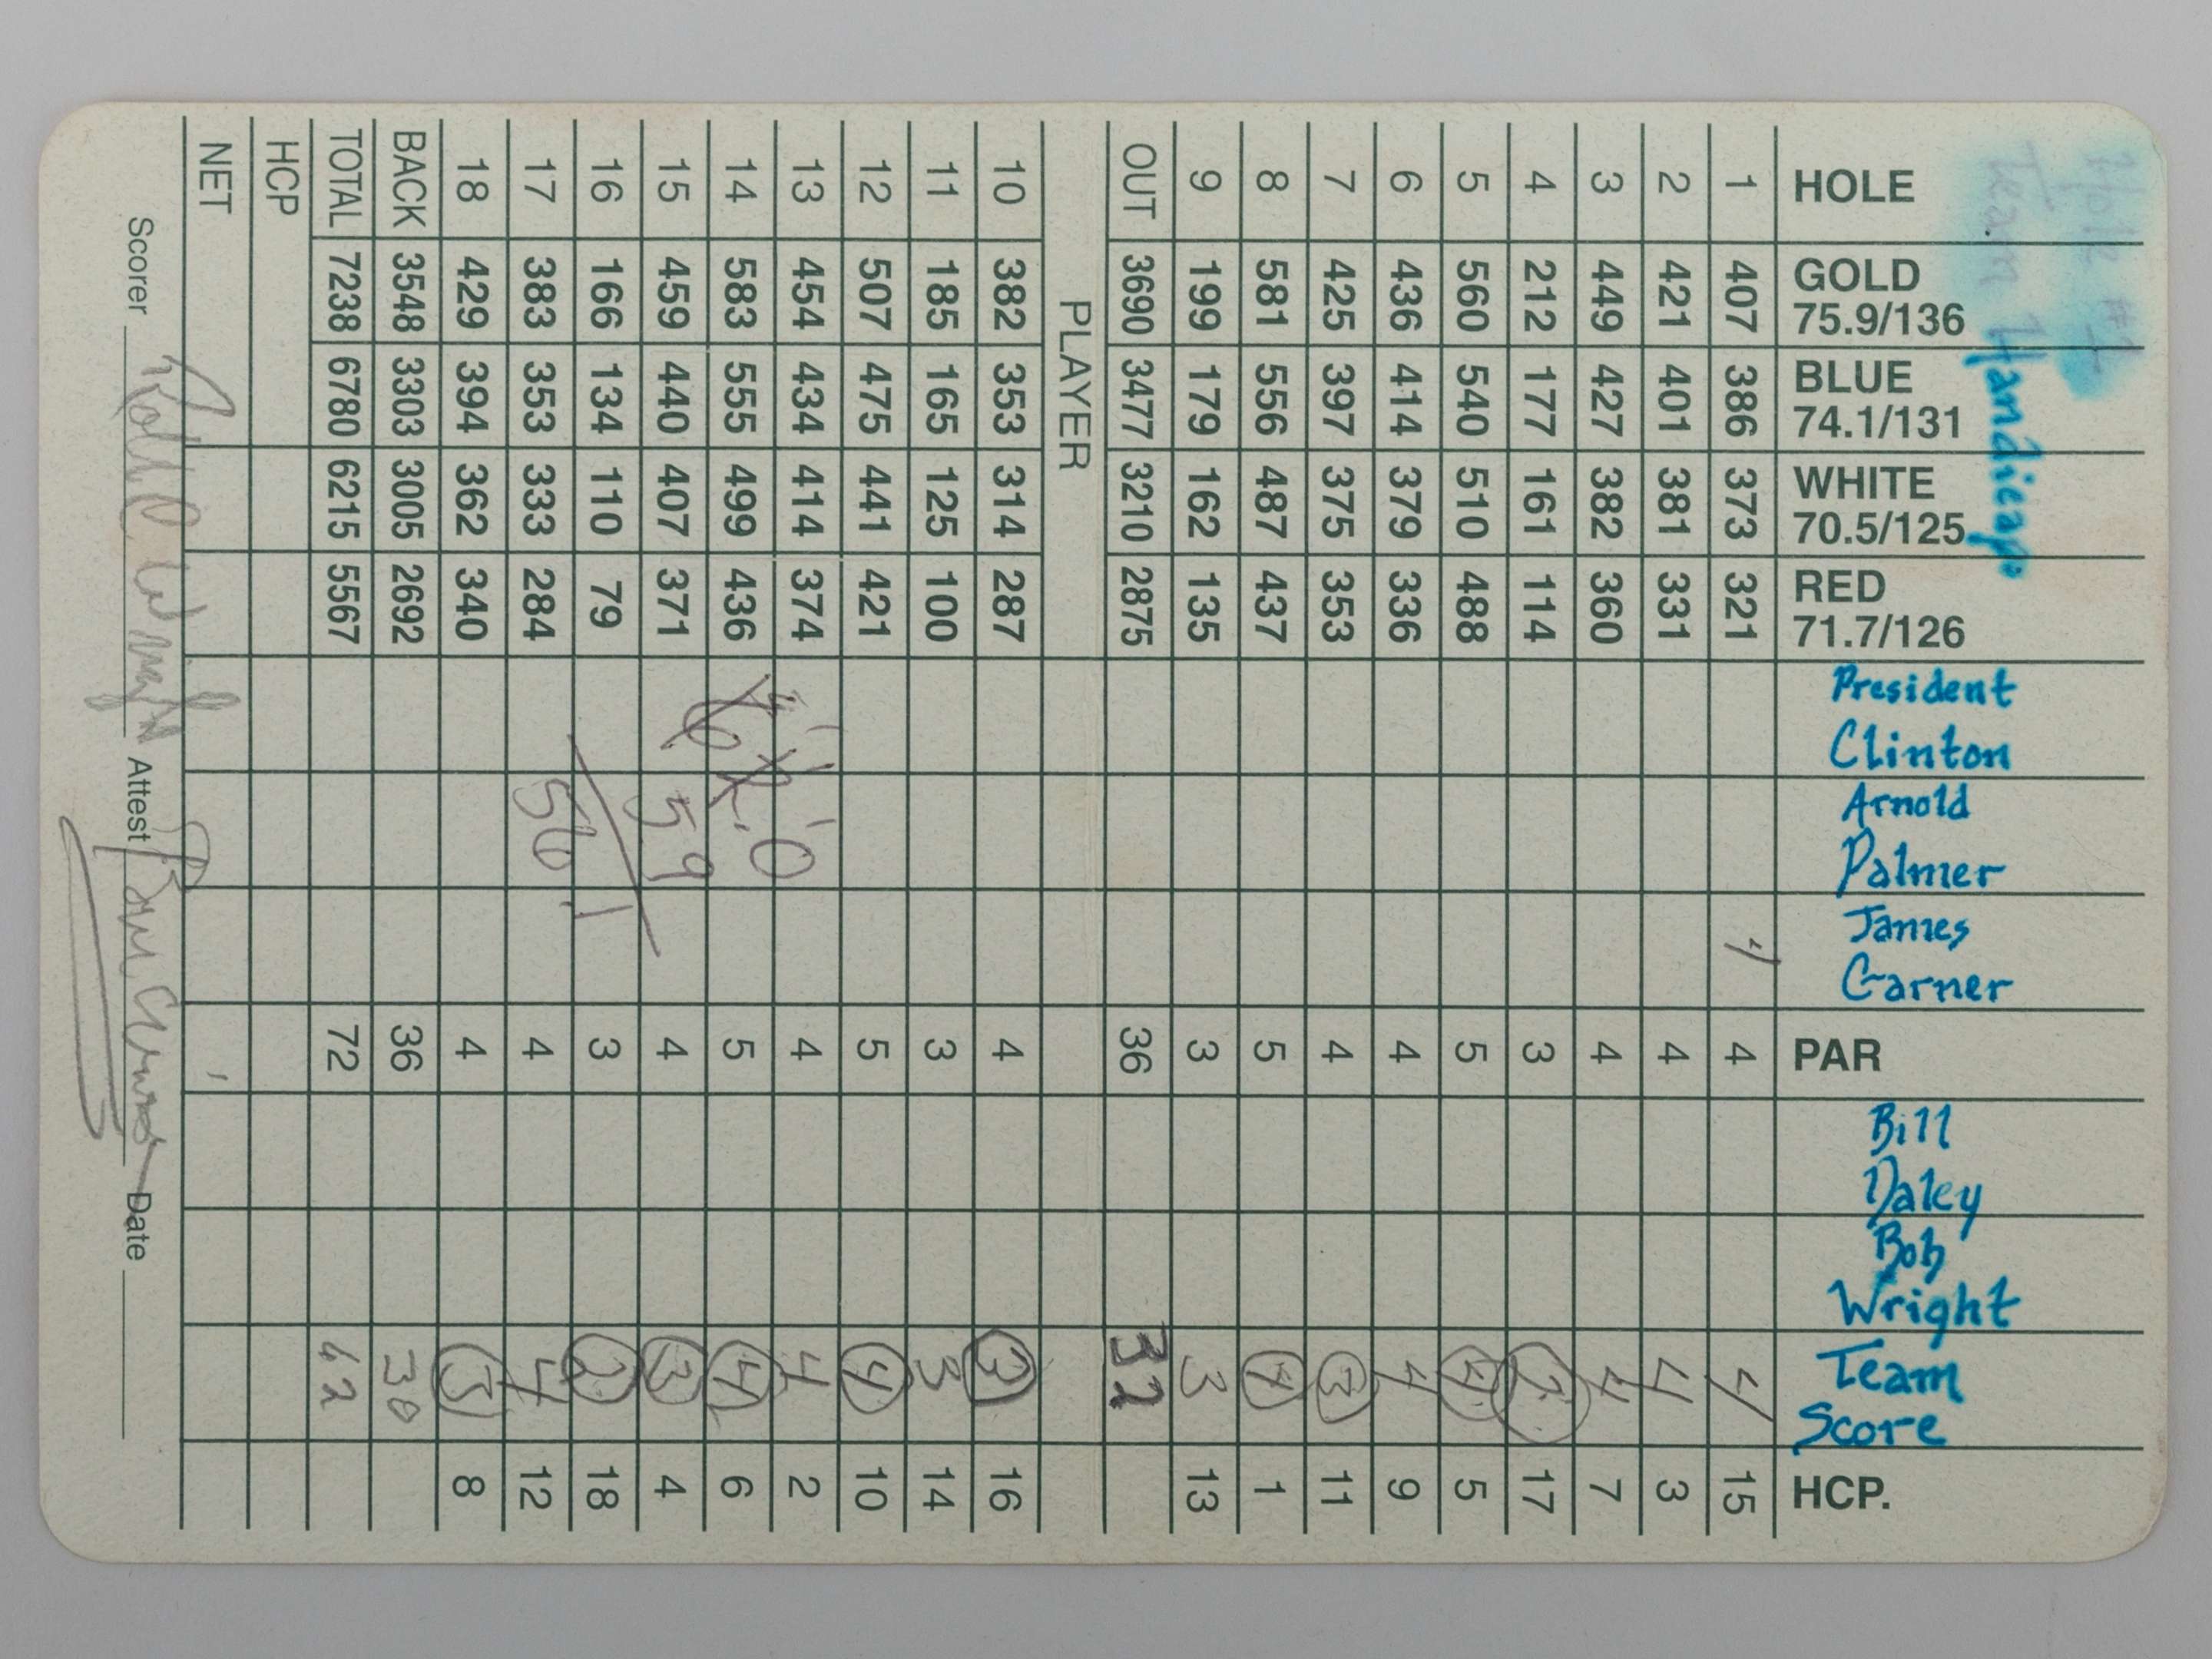 Hole #1
Team Handicap
HOLE
GOLD
75.9/136
BLUE
74.1/131
WHITE
70.5/125
RED
71.7/126
President
Clinton
Arnold
Palmer
James
Garner
PAR
Bill
Daley
Bob
Wright
Team
Score
HCP.
1 407 386 373 321 4 4 4 15
2 421 401 381 331 4 4 3
3 449 427 382 360 4 4 7
4 212 177 161 114 3 2 17
5 560 540 510 488 5 4 5
6 436 414 379 336 4 4 9
7 425 397 375 353 4 3 11
8 581 556 487 437 5 4 1
9 199 179 162 135 3 3 13
OUT 3690 3477 3210 2875 36 32
PLAYER
10 382 353 314 287 4 3 16
11 185 165 125 100 3 3 14
12 507 475 441 421 5 4 10
13 454 434 414 374 4 4 2
14 583 555 499 436 5 4 6
15 459 440 407 371 5.9 4 3 4
16 166 134 110 79 3 2 18
17 383 353 333 284 56.1 4 4 12
18 429 394 362 340 4 3 8
BACK 3548 3303 3005 2692 36 30
TOTAL 7238 6780 6215 5567 72 62
HCP
NET
Scorer Attest Date